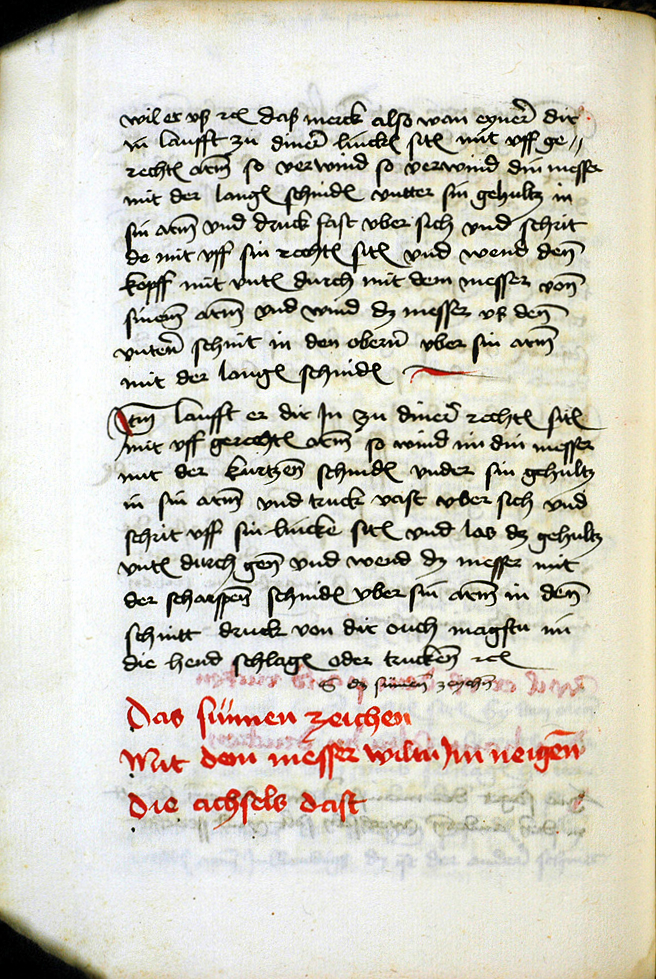 wil er vß etc daß merck also wan eyner dir
in laufft zu diner lincken sitten mit vff ge//
rechtem arm so verwind so verwind din messer
mit der langen schniden vntter sin gehultz in
sin arm vnd druck fast vber sich vnd schrit
do mit vff sin rechten sitten vnd wend den
kopff mit vnten durch mit dem messer von
sinem arm vnd wind dz messer vß dem
vntern schnit in den obern vber sin arm
mit der langen schniden
Item laufft er dir In zu diner rechten sitten
mit vff gerechten arm so wind im din messer
mit der kurtzen schniden vnder sin gehultz
in sin arm vnd truck vast vber sich vnd
schrit vff sin lincke sitten vnd las dz gehultz
vnten durch gen vnd wend dz messer mit
der scharpfen schniden vber sin arm in dem
schnitt druck von dir ouch magstu im
die hend schlagen oder trucken etc
dz sunnen zeychen
Das sunnen zeichen
Mit dem messer wiltu Im neigen
die achseln dast